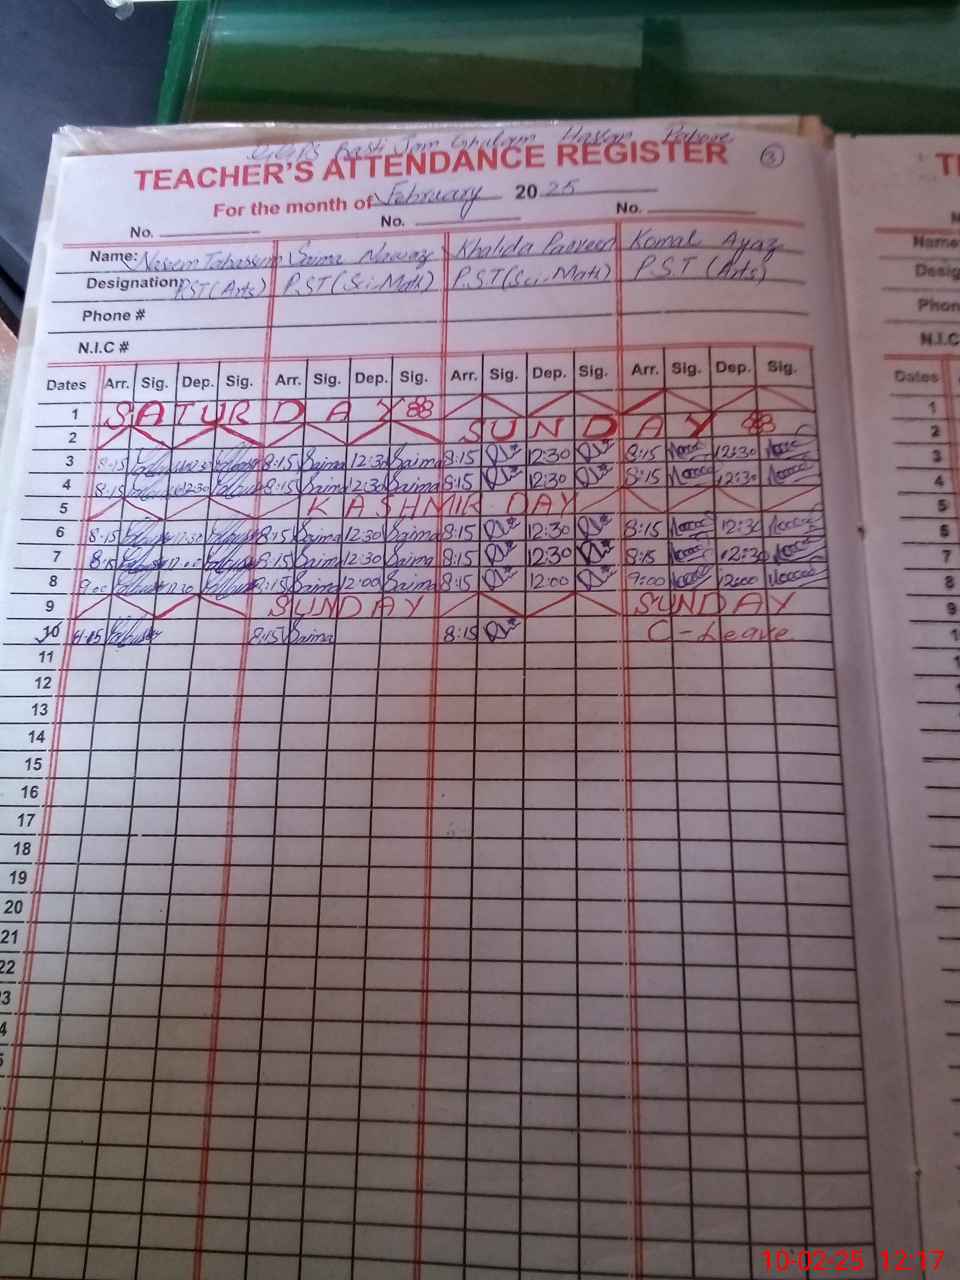 Basti Jam Ghulam Hassan
TEACHER'S ATTENDANCE REGISTER 3
For the month of February 2025
No. No. No.
Name: Naseem Tabassum Saima Nawaz Khalida Parveen Komal Ayaz
Designation: P.ST (Arts) P.ST (Sci. Math) P.ST (Sci. Math) P.S.T (Arts)
Phone #
N.I.C #
Dates Arr. Sig. Dep. Sig. Arr. Sig. Dep. Sig. Arr. Sig. Dep. Sig. Arr. Sig. Dep. Sig.
1 SATURDAY
2 SUNDAY
3 8:15 8:15 Saima 12:30 Saima 8:15 12:30 8:15 12:30
4 8:15 12:30 8:15 Saima 12:30 Saima 8:15 12:30 8:15 12:30
5 KASHMIR DAY
6 8:15 8:15 Saima 12:30 Saima 8:15 12:30 8:15 12:30
7 8:15 8:15 Saima 12:30 Saima 8:15 12:30 8:15 12:30
8 9:00 8:15 Saima 12:00 Saima 8:15 12:00 9:00 12:00
9 SUNDAY SUNDAY
10 8:15 Saima 8:15 C-Leave
11
12
13
14
15
16
17
18
19
20
21
22
3
4
5
Name:
Desig
Phon
N.I.C
Dates
1
2
3
4
5
6
7
8
9
10
10-02-25 12:17